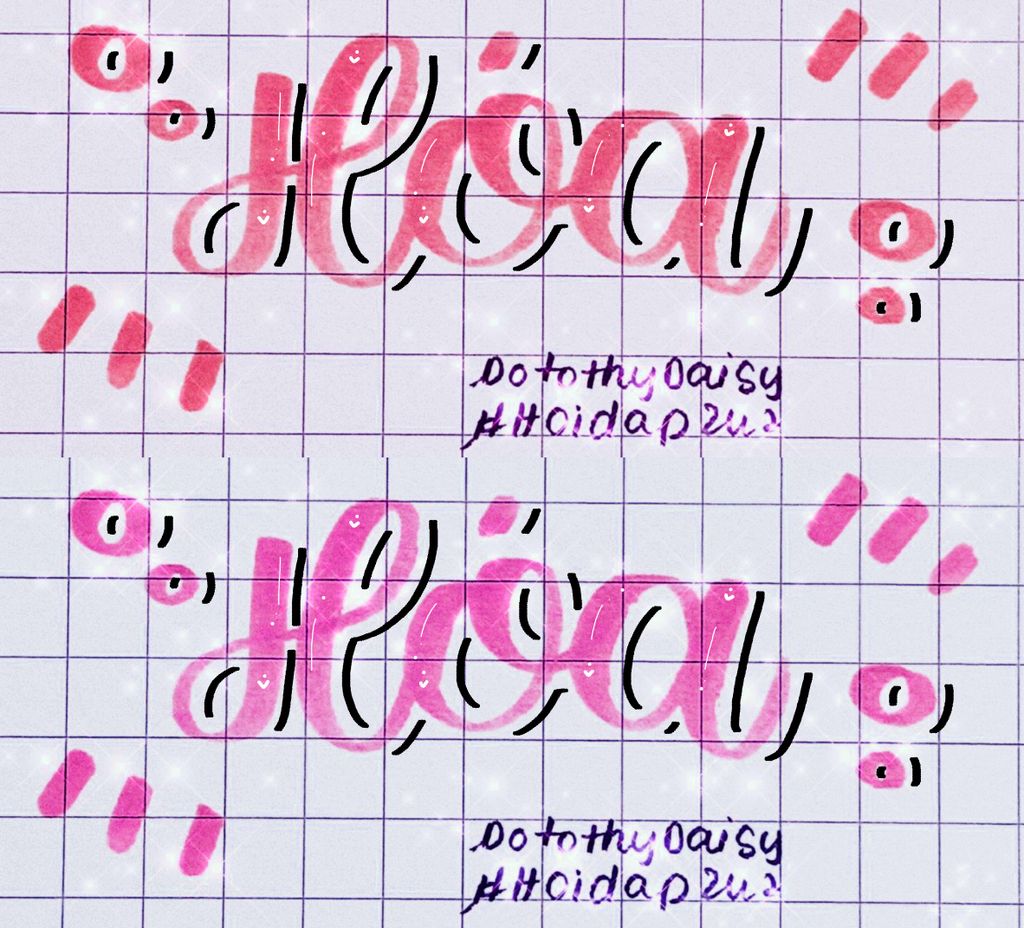 Hóa
DotothyDaisy
#Hoidap247
Hóa
DotothyDaisy
#Hoidap247